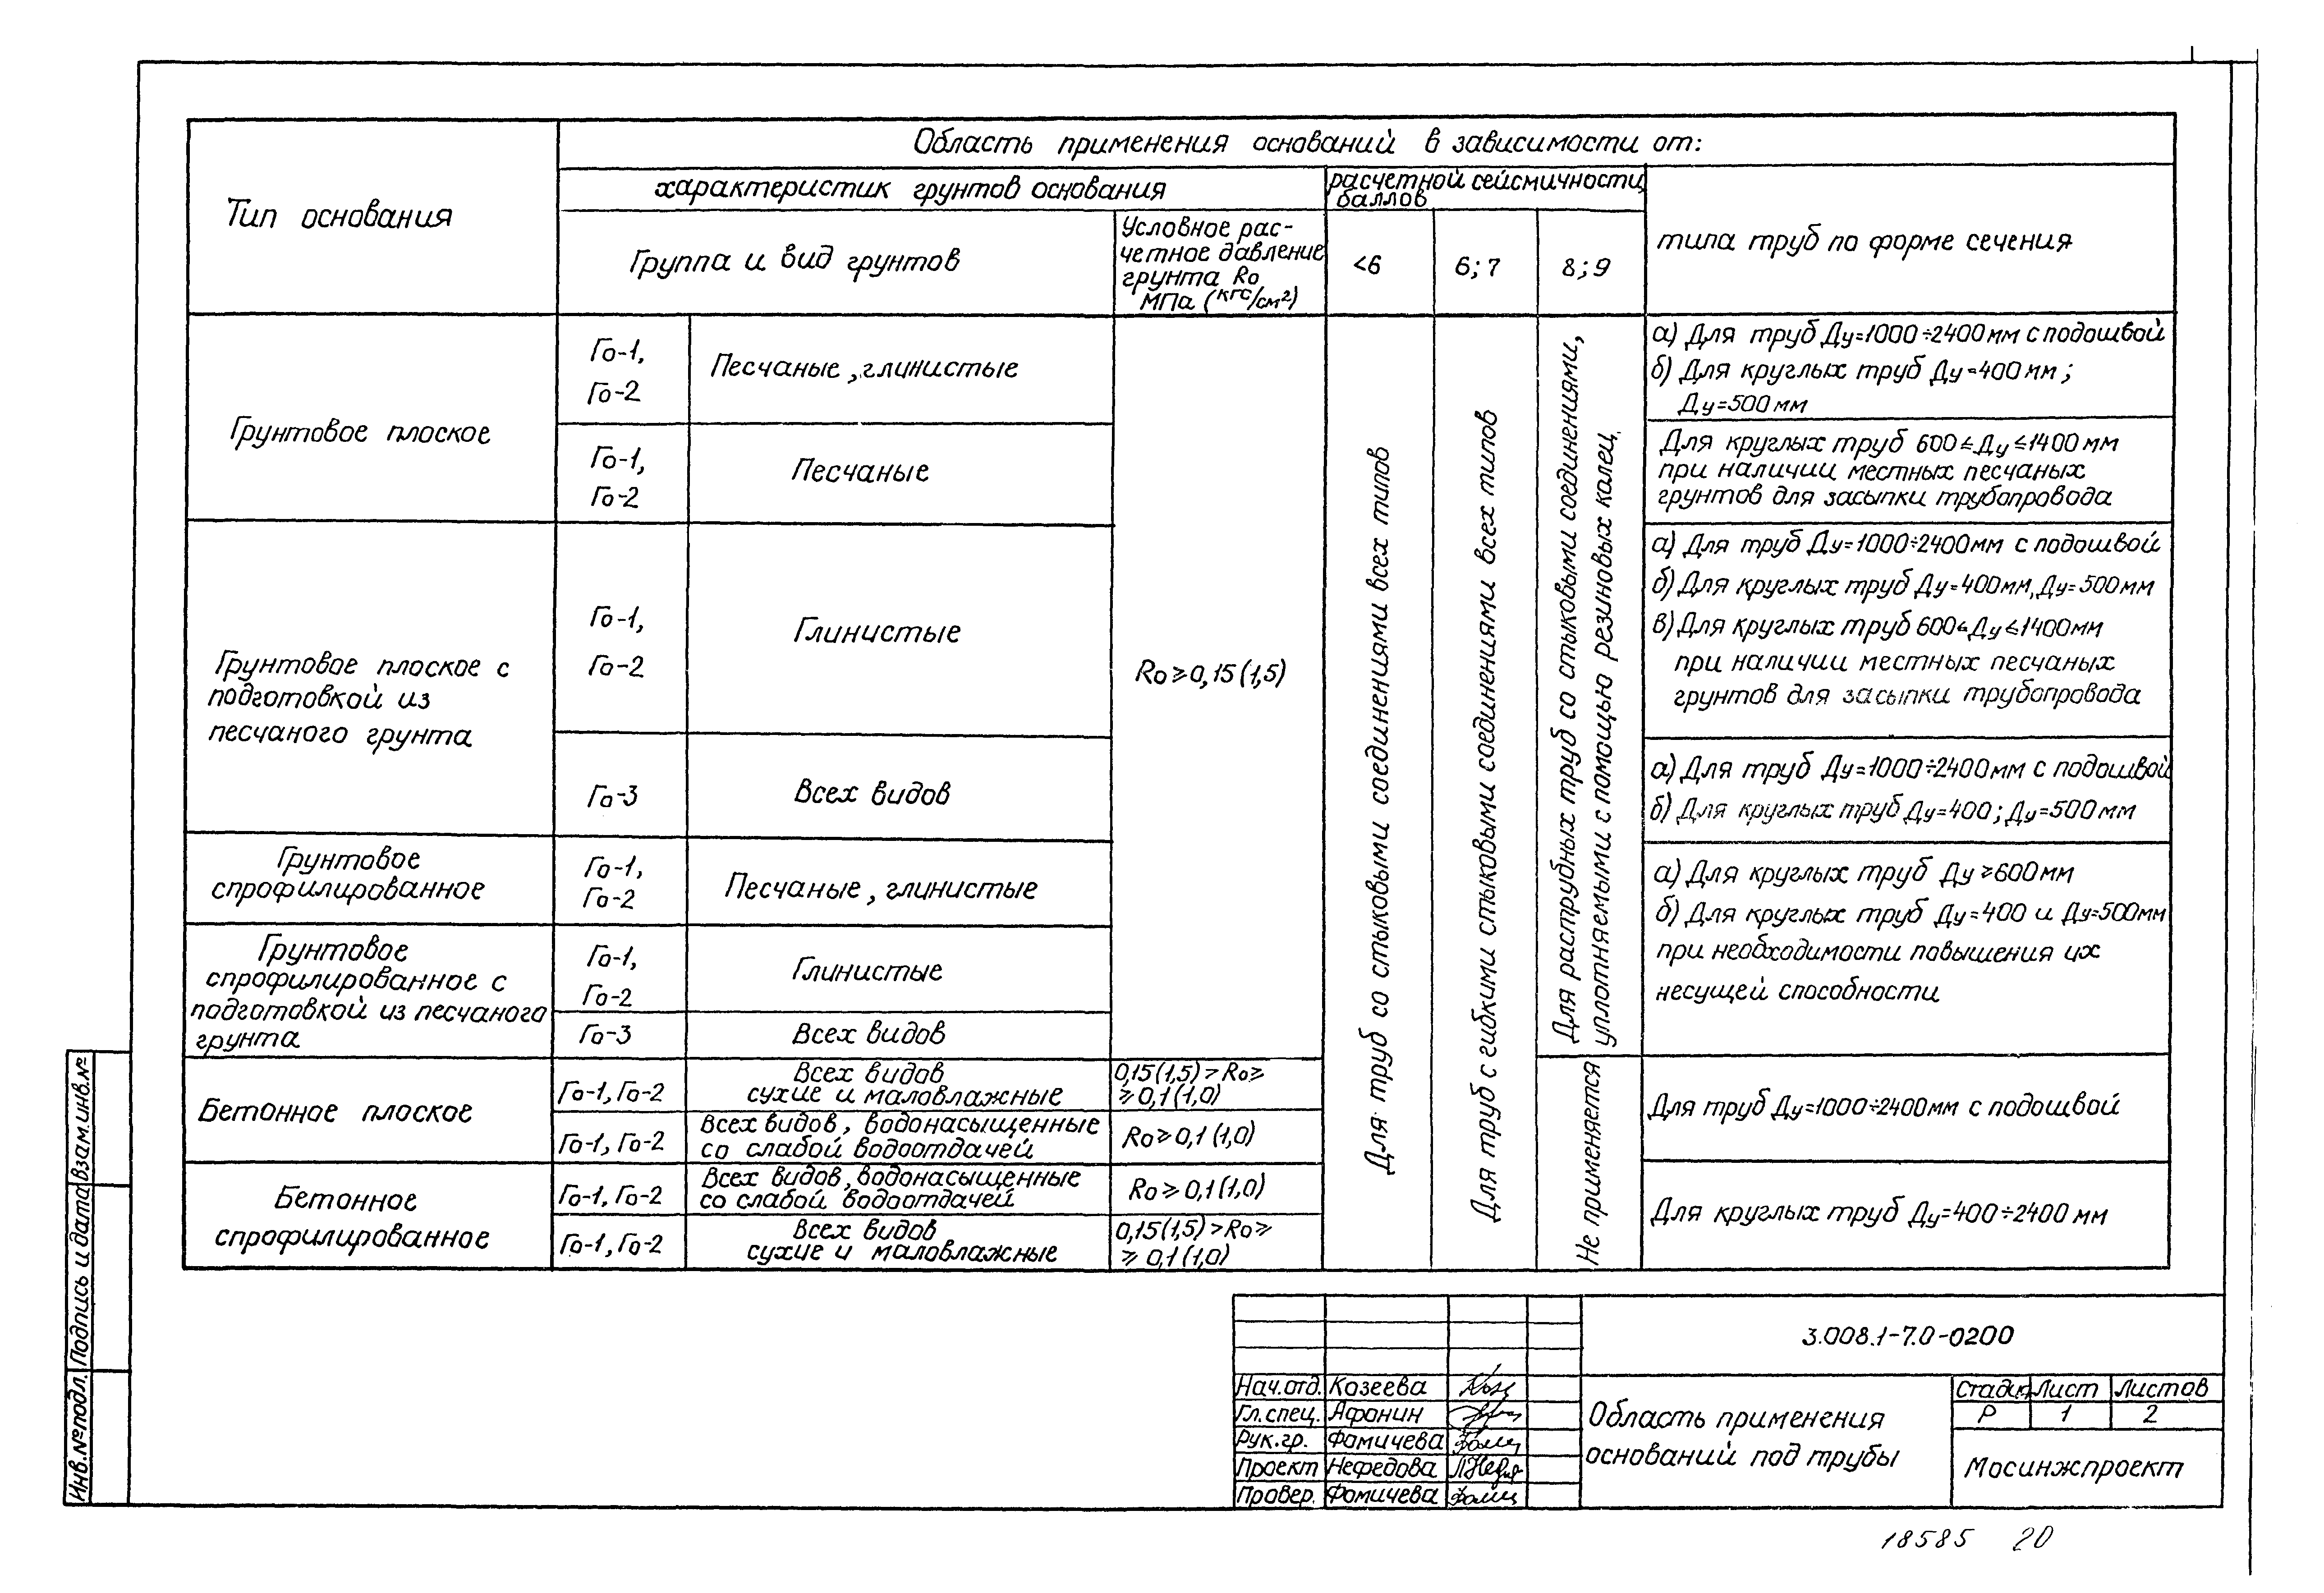 Область применения оснований в зависимости от:
Тип основания
характеристик грунтов основания
расчетной сейсмичности,
баллов
типа труб по форме сечения
Группа и вид грунтов
Условное рас-
четное давление
грунта Rо
МПа (кгс/см²)
<6
6; 7
8; 9
Грунтовое плоское
Го-1,
Го-2
Песчаные, глинистые
Го-1,
Го-2
Песчаные
Rо ≥ 0,15 (1,5)
Для труб со стыковыми соединениями всех типов
Для труб с гибкими стыковыми соединениями всех типов
Для раструбных труб со стыковыми соединениями,
уплотняемыми с помощью резиновых колец.
а) Для труб Ду=1000÷2400 мм с подошвой
б) Для круглых труб Ду=400 мм;
Ду=500 мм
Для круглых труб 600≤Ду≤1400 мм
при наличии местных песчаных
грунтов для засыпки трубопровода
Грунтовое плоское с
подготовкой из
песчаного грунта
Го-1,
Го-2
Глинистые
Го-3
Всех видов
а) Для труб Ду=1000÷2400мм с подошвой
б) Для круглых труб Ду=400мм, Ду=500 мм
в) Для круглых труб 600≤Ду≤1400мм
при наличии местных песчаных
грунтов для засыпки трубопровода
а) Для труб Ду=1000÷2400мм с подошвой
б) Для круглых труб Ду=400; Ду=500 мм
Грунтовое
спрофилированное
Го-1,
Го-2
Песчаные, глинистые
Грунтовое
спрофилированное с
подготовкой из песчаного
грунта
Го-1,
Го-2
Глинистые
Го-3
Всех видов
а) Для круглых труб Ду ≥600мм
б) Для круглых труб Ду=400 и Ду=500мм
при необходимости повышения их
несущей способности
Бетонное плоское
Го-1, Го-2
Всех видов
сухие и маловлажные
0,15(1,5) > Rо ≥
≥ 0,1 (1,0)
Го-1, Го-2
Всех видов, водонасыщенные
со слабой водоотдачей
Rо ≥ 0,1 (1,0)
Не применяется
Для труб Ду=1000÷2400мм с подошвой
Бетонное
спрофилированное
Го-1, Го-2
Всех видов, водонасыщенные
со слабой водоотдачей
Rо ≥ 0,1 (1,0)
Го-1, Го-2
Всех видов
сухие и маловлажные
0,15(1,5) > Rо ≥
≥ 0,1 (1,0)
Для круглых труб Ду=400÷2400 мм
Инв.№подл. Подпись и дата Взам.инв.№
3.008.1-7.0-0200
Нач.отд. Козеева
Гл.спец. Афонин
Рук.гр. Фомичева
Проект Нефедова
Провер. Фомичева
Область применения
оснований под трубы
Стадия Лист Листов
Р 1 2
Мосинжпроект
18585 20